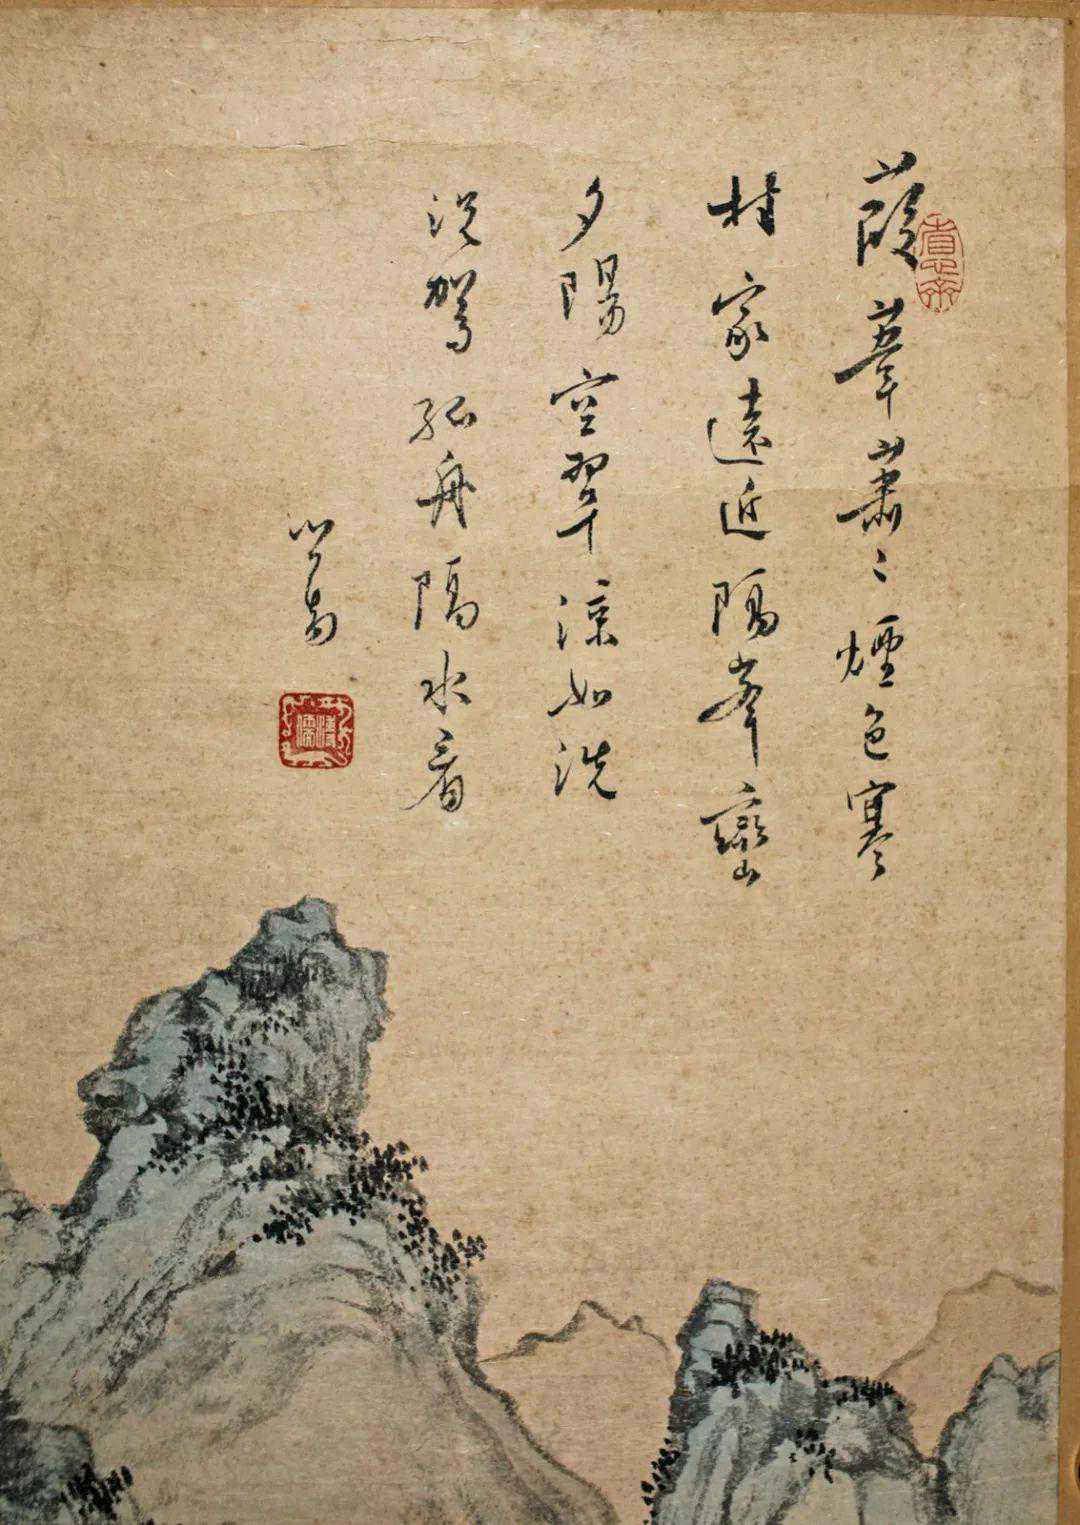 葭葦蕭〻煙色寒
村家遠近隔峯巒
夕陽空翠涼如洗
況駕孤舟隔水看
心畬
溥儒